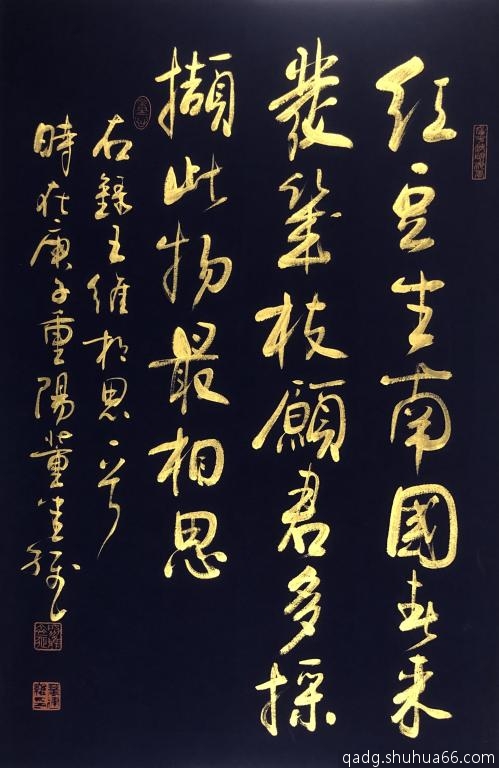 红豆生南國春来
發幾枝願君多採
擷此物最相思
右錄王維相思一首
時在庚子重陽董生
qadg.shuhua66.com